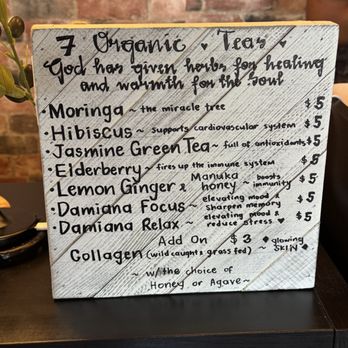 7 Organic ♥ Teas ♥
God has given herbs for healing
and warmth for the Soul
• Moringa ~ the miracle tree $5
• Hibiscus ~ supports cardiovascular system $5
• Jasmine Green Tea ~ full of antioxidants $5
• Elderberry ~ fires up the immune system $5
• Lemon Ginger & Manuka honey ~ boosts immunity $5
• Damiana Focus ~ elevating mood & sharpen memory $5
• Damiana Relax ~ elevating mood & reduce stress ♥ $5
Add On $3 ♦ glowing
Collagen (wild caught & grass fed) ~ SKIN ♦
~ w/ the choice of
Honey or Agave ~